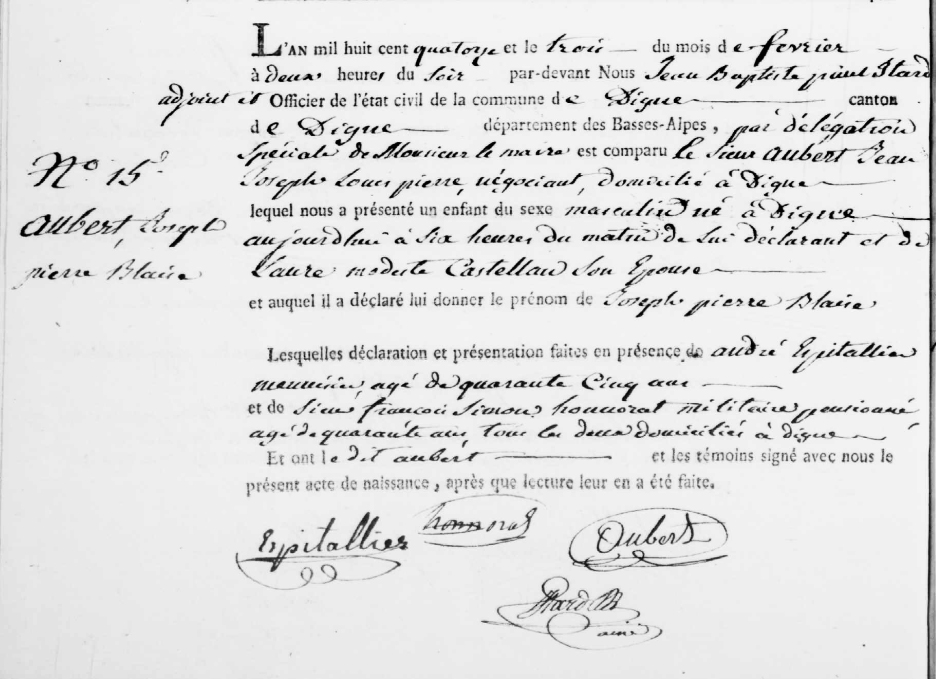 L'AN mil huit cent quatorze et le trois du mois de fevrier
à deux heures du soir par-devant Nous Jean Baptiste
adjoint et Officier de l'état civil de la commune de Digne canton
de Digne département des Basses-Alpes, par délégation
Spéciale de Monsieur le maire est comparu le Sieur aubert Jean
N.º 15.
Joseph Louis pierre, négociant, domicilié à Digne
lequel nous a présenté un enfant du sexe masculin né à Digne
aubert, Joseph
aujourdhui à six heures du matin de lui déclarant et de
pierre Blaise
Laure modeste Castellan son Epouse
et auquel il a déclaré lui donner le prénom de Joseph pierre Blaise
Lesquelles déclaration et présentation faites en présence de andré Epitallier
menuisier agé de quarante Cinq ans
et de Sieur françois Simon honnorat militaire pensionné
agé de quarante ans, tous les deux domiciliés à digne
Et ont le dit aubert et les témoins signé avec nous le
présent acte de naissance, après que lecture leur en a été faite.
Epitallier honnorat Aubert
ainé